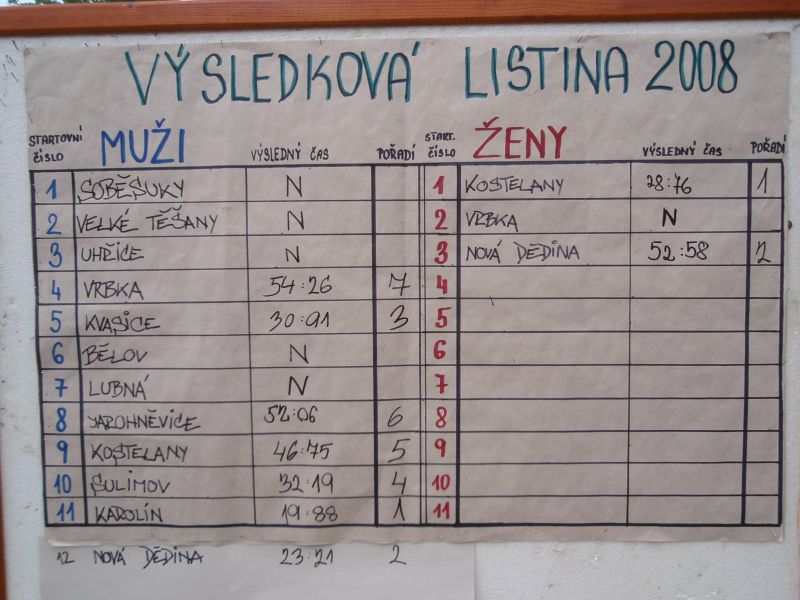 VÝSLEDKOVÁ LISTINA 2008
STARTOVNÍ ČÍSLO MUŽI VÝSLEDNÝ ČAS POŘADÍ START. ČÍSLO ŽENY VÝSLEDNÝ ČAS POŘADÍ
1 SOBĚSUKY N 1 KOSTELANY 28:76 1
2 VELKÉ TĚŠANY N 2 VRBKA N
3 UHŘICE N 3 NOVÁ DĚDINA 52:58 2
4 VRBKA 54:26 7 4
5 KVASICE 30:91 3 5
6 BĚLOV N 6
7 LUBNÁ N 7
8 JAROHNĚVICE 52:06 6 8
9 KOSTELANY 46:75 5 9
10 SULIMOV 32:19 4 10
11 KAROLÍN 19:88 1 11
12 NOVÁ DĚDINA 23:21 2